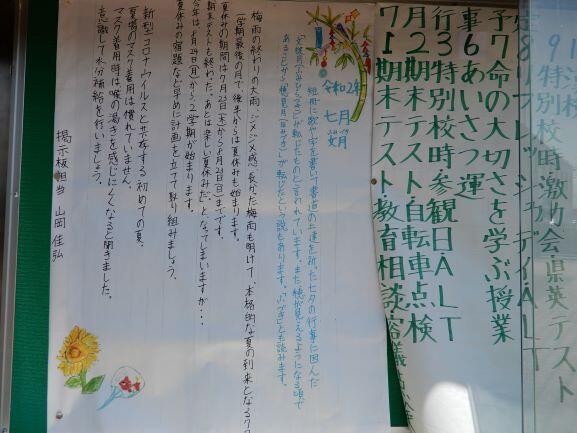 91
特別校時・激励会・県英テスト
8リフレッシュデイ・ALT
予7命の大切さを学ぶ授業
定
車6あいさつ運
行3特別校時・参観日・ALT
月2期末テスト・自転車点検
71期末テスト・教育相談・容儀
令和2年
七月
文月
短冊に歌や字を書いて書道の上達を祈った七夕の行事に因んだ
「文披月」が転じたものと言われています。また穂が見えるようになる頃で
あることから「穂見月」が転じたという説もあります。「ふづき」とも読みます。
梅雨の終わりの大雨、ジメジメ感、長かった梅雨も明けて、本格的な夏の到来となる7月
一学期最後の月で、後半からは夏休みも始まります。
夏休みの期間は7月23日(木)から8月23日(日)までです。
期末テストも終わった。あとは楽しい夏休みだ、となってしまいますが・・・
今年は8月24日(月)から2学期が始まります。
夏休みの宿題など早めに計画を立てて取り組みましょう。
新型コロナウイルスと共存する初めての夏。
夏場のマスク着用は慣れていません。
マスク着用時は喉の渇きを感じにくくなると聞きました。
意識して水分補給を行いましょう。
掲示板担当 山岡佳弘